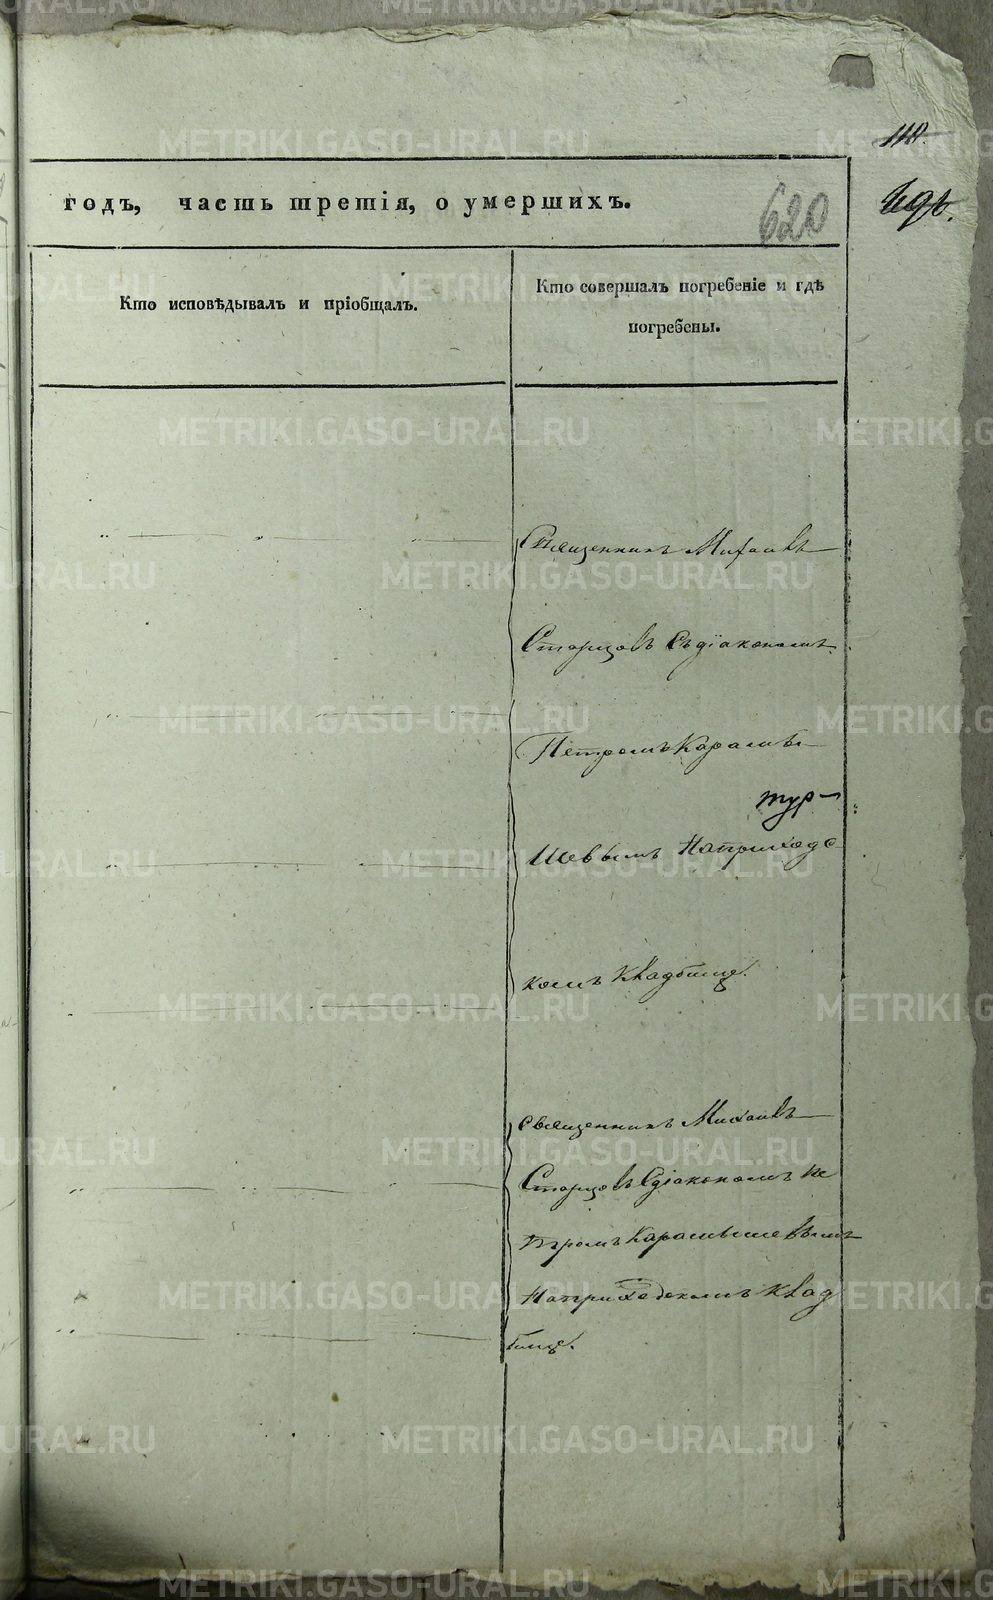 118.
годъ, часть третія, о умершихъ.
620
Кто исповѣдывалъ и пріобщалъ.
Кто совершалъ погребеніе и гдѣ
погребены.
Священникъ Михаилъ
Старцовъ Съдіакономъ
Петромъ Карамы
тур-
шевымъ Наприходс
комъ кладбище.
Священникъ Михаилъ
Старцовъ Сдіакономъ Пе
тромъ Карамышевымъ
Наприходскомъ клад
бище.
METRIKI.GASO-URAL.RU